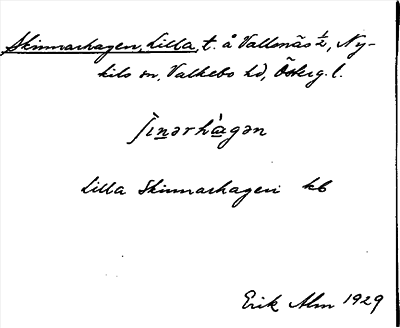 Skinnarhagen, Lilla, t. å Vallenäs ½, Ny-
kils sn, Valkebo hd, Österg. l.
ʃìnərhàgən
Lilla Skinnarhagen kb
Erik Alm 1929